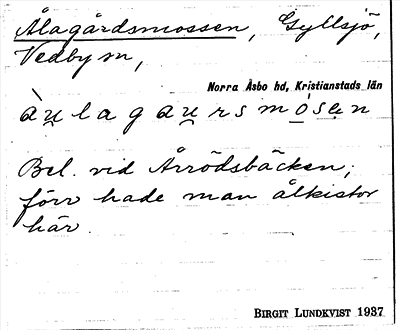 Ålagårdsmossen, Gyllsjö,
Vedby sn,
Norra Åsbo hd, Kristianstads län
àu̯lagau̯rsmósen
Bel. vid Årrödsbäcken;
förr hade man ålkistor
här.
BIRGIT LUNDKVIST 1937